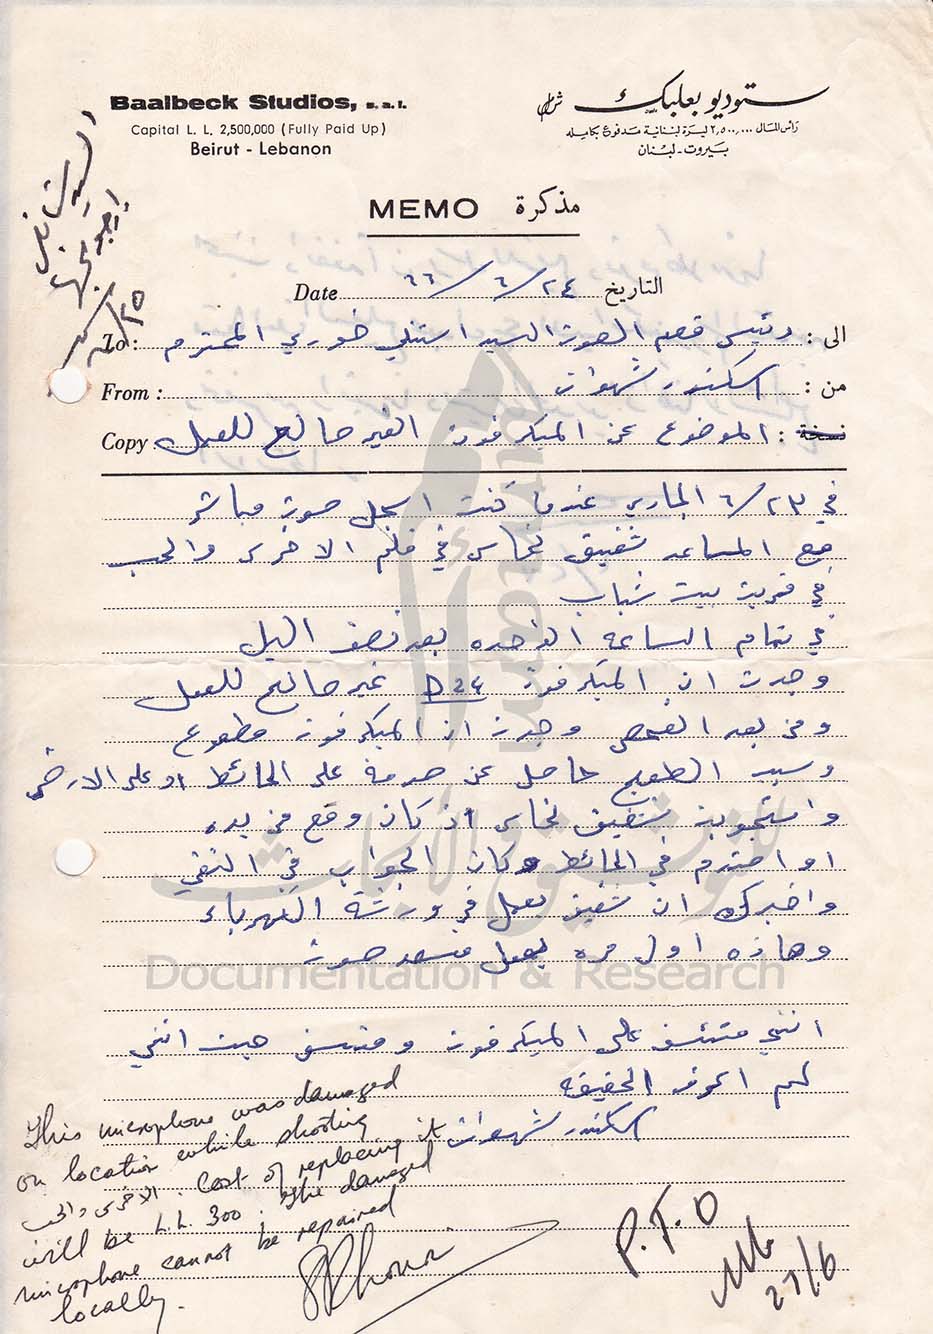 Baalbeck Studios, s.a.l.
Capital L. L. 2,500,000 (Fully Paid Up)
Beirut - Lebanon
ستوديو بعلبك ش.م.ل
رأس المال ٢,٥٠٠,٠٠٠ ليرة لبنانية مدفوع بكامله
بيروت - لبنان
MEMO مذكرة
Date ٦٦/٦/٢٤ التاريخ
To : رئيس قصم الصوت السيد استنلي خوري المحترم الى :
From : اسكندر شهوان من :
Copy الموضوع عن الميكرفون الغير صالح للعمل نسخة :
في ٦/٢٣ الجاري عندما كنت اسجل صوت مباشر
مع المساعد شفيق نحاس في فلم الاخرس والحب
في قرية بيت شباب
في تمام الساعة الوحده بعد نصف اليل
وجدت ان الميكرفون D24 غير صالح للعمل
ومن بعد الفحص وجدت ان الميكرفون مطعوج
وسبب الطعج حاصل عن صدمة على الحائط او على الارض
واستجوبت شفيق نحاس اذ كان وقع من يده
او اصتدم في الحائط وكان الجواب في النفي
واخبرك ان شفيق يعمل في ورشة الكهرباء
وهاذه اول مره يعمل مسعد صوت
انني متئسف على الميكرفون ومتسف حيث انني
لم اعرف الحقيقه
اسكندر شهوان
This microphone was damaged
on location while shooting
الاخرس والحب . Cost of replacing it
will be L.L. 300. The damaged
microphone cannot be repaired
locally.
P.T.O
27/6
للتوثيق والأبحاث
Documentation & Research